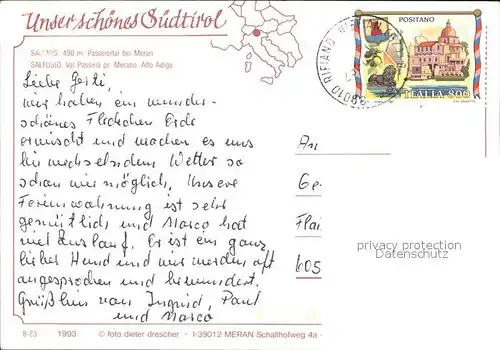 Unser schönes Südtirol
SALTAUS, 490 m Passeiertal bei Meran
SALTUSIO, Val Passiria pr. Merano, Alto Adige
Liebe Gerti,
wir haben ein wunder-
schönes Fleckchen Erde
erwischt und machen es uns
bei wechselndem Wetter so
schön wie möglich. Unsere
Ferienwohnung ist sehr
gemütlich und Marco hat
viel Auslauf. Er ist ein ganz
lieber Hund und wir werden oft
angesprochen und bewundert.
Grüßlein von Ingrid, Paul
und Marco
POSITANO
ITALIA 800
RIFIANO
39010
An
Ge
605
privacy protection
Datenschutz
8-23 1993 © foto dieter drescher I-39012 MERAN Schallhofweg 4a